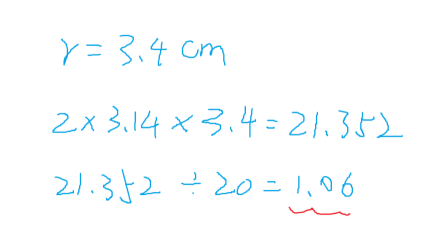 r = 3.4 cm
2 × 3.14 × 3.4 = 21.352
21.352 ÷ 20 = 1.06